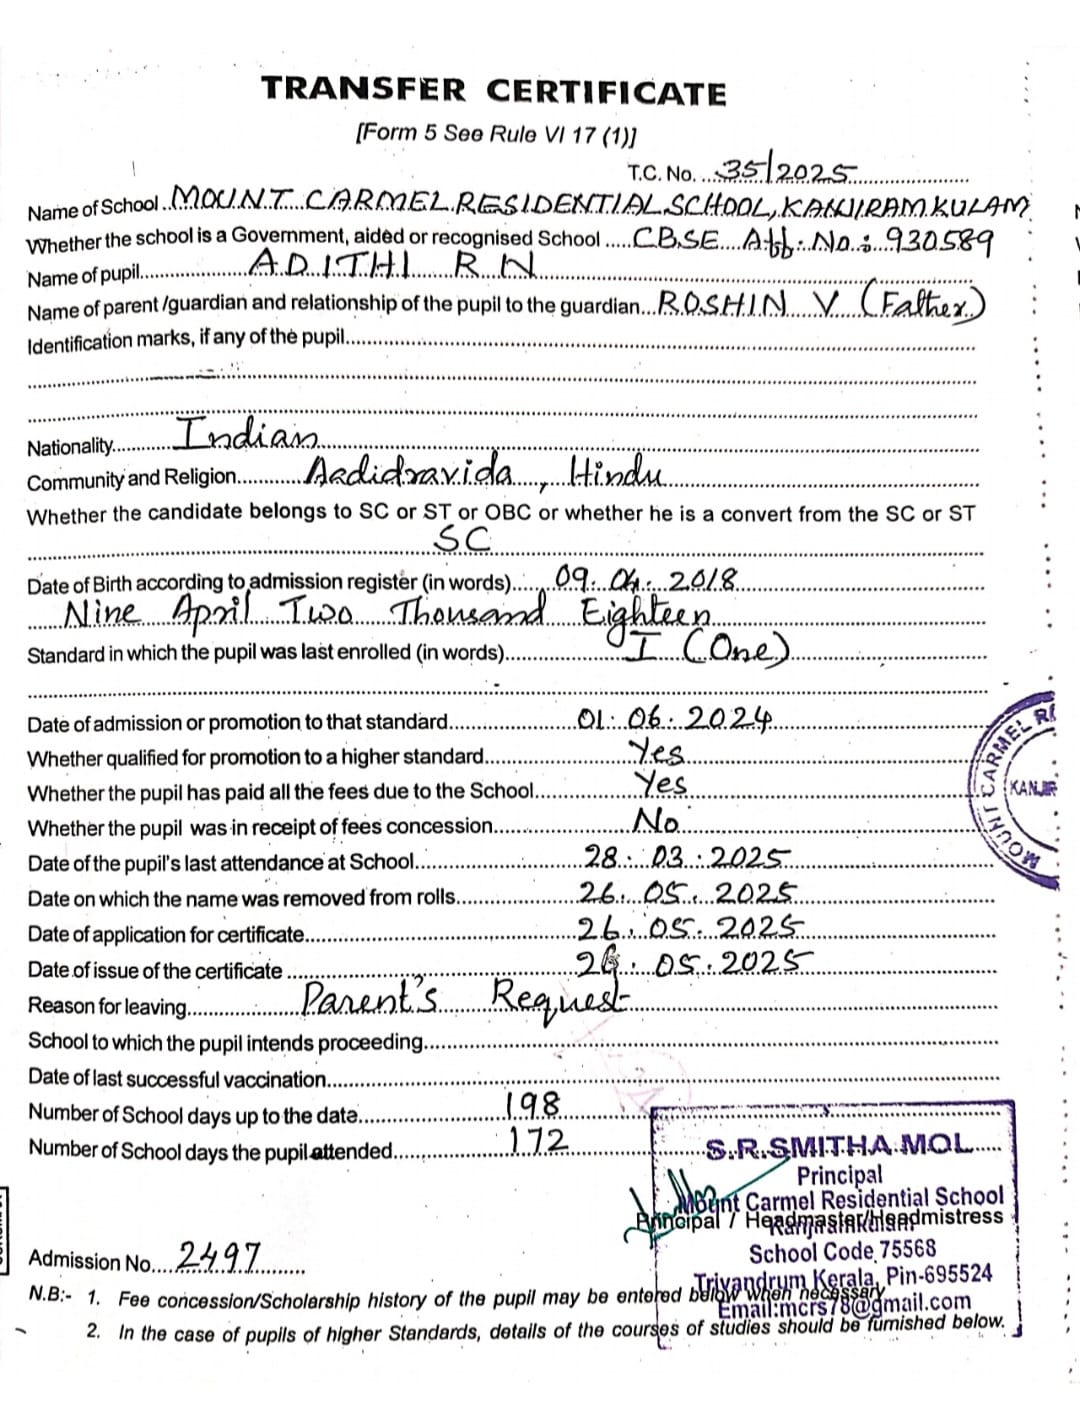 TRANSFER CERTIFICATE
[Form 5 See Rule VI 17 (1)]
T.C. No. ...35/2025
Name of School ..MOUNT CARMEL RESIDENTIAL SCHOOL, KANJIRAMKULAM
Whether the school is a Government, aided or recognised School .....CBSE Aff: No: 930589
Name of pupil..............ADITHI R N
Name of parent /guardian and relationship of the pupil to the guardian...ROSHIN V (Father)
Identification marks, if any of the pupil.....
Nationality............Indian
Community and Religion............Aadidravida, Hindu
Whether the candidate belongs to SC or ST or OBC or whether he is a convert from the SC or ST
SC
Date of Birth according to admission register (in words)......09.04.2018
Nine April Two Thousand Eighteen
Standard in which the pupil was last enrolled (in words)......I (One)
Date of admission or promotion to that standard......01.06.2024
Whether qualified for promotion to a higher standard......Yes
Whether the pupil has paid all the fees due to the School......Yes
Whether the pupil was in receipt of fees concession......No
Date of the pupil's last attendance at School......28.03.2025
Date on which the name was removed from rolls......26.05.2025
Date of application for certificate......26.05.2025
Date of issue of the certificate ......26.05.2025
Reason for leaving......Parent's Request
School to which the pupil intends proceeding......
Date of last successful vaccination......
Number of School days up to the data......198
Number of School days the pupil attended......172
MOUNT CARMEL RE
KANJIR
S.R.SMITHA MOL
Principal
Mount Carmel Residential School
Principal / Headmaster/Headmistress
School Code 75568
Trivandrum Kerala, Pin-695524
Email:mcrs78@gmail.com
Admission No....2497
N.B:- 1. Fee concession/Scholarship history of the pupil may be entered below when necessary
2. In the case of pupils of higher Standards, details of the courses of studies should be furnished below.